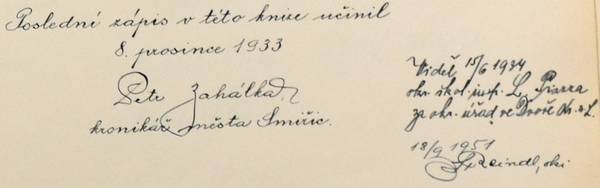 Poslední zápis v této knize učinil
8. prosince 1933
Petr Zahálka,
kronikář města Smiřic.
Viděl 15/6 1934
okr. škol. insp. L. Piazza
za okr. úřad ve Dvoře Kr. n. L.
18/9 1951